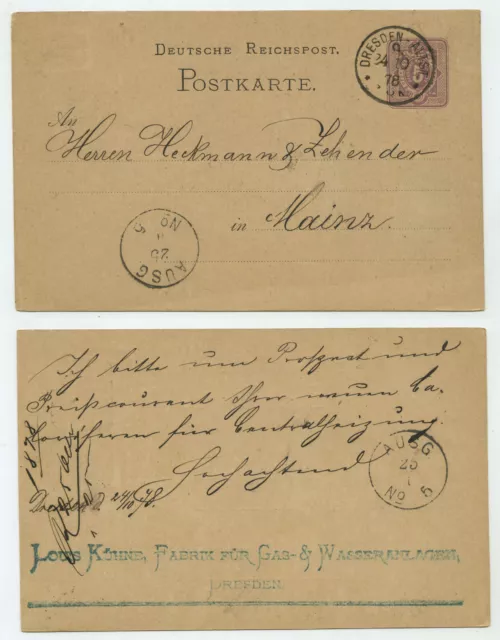 DEUTSCHE REICHSPOST.
POSTKARTE.
DRESDEN-ALTST.
24 10
78
An
Herren Heckmann & Zehender
in Mainz.
AUSG
25
No 5
Ich bitte um Prospect und
Preiscourant Ihrer neuen Ca-
loriferen für Centralheizung
Hochachtend
Dresden 24/10 78.
1878
AUSG
25
1
No 5
LOUIS KÜHNE, FABRIK FÜR GAS- & WASSERANLAGEN,
DRESDEN.